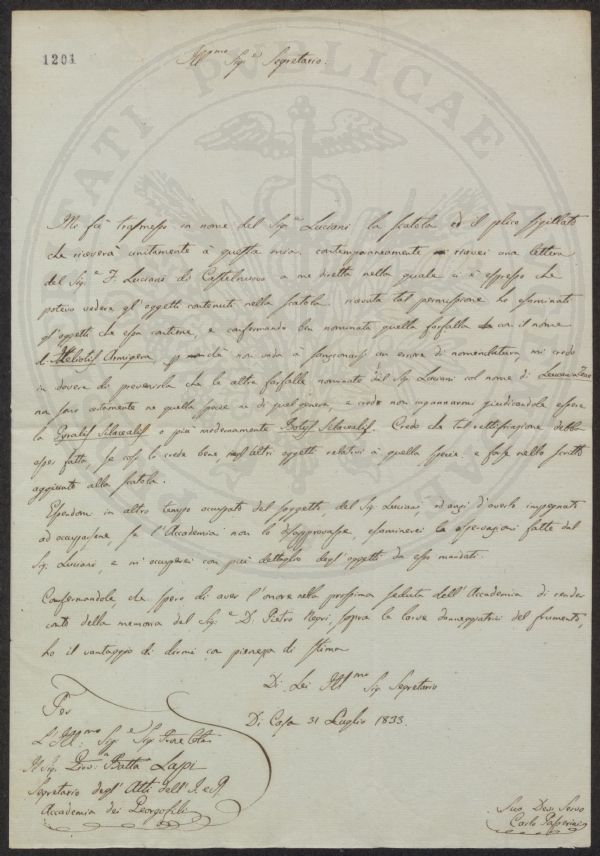 1201
Ill.mo Sig.e Segretario.
Mi fù trasmesso in nome del Sig.e Luciani la scatola ed il plico sigillato
che riceverà unitamente à questa mia. contemporaneamente ricevei una lettera
del Sig.e F. Luciani di Castelnuovo a me diretta nella quale vi è espresso che
potevo vedere gl'oggetti contenuti nella scatola ricevuta tal permissione ho esaminati
gl'oggetti che essa contiene, e confermando ben nominata quella farfalla con il nome
d. Heliotis Armigera non vada à un errore di nomenclatura, mi credo
in dovere di prevenirla che le altre farfalle nominate dal Sig. Luciani col nome di
na sono certamente ne quella specie ne di quel genere, e credo non ingannarmi giudicandole essere
la Pyralis Silacealis o più modernamente Botys Silacealis. Credo che tal rettificazione debba
esser fatta, se così lo crede bene, negl'altri oggetti relativi à quella specie e forse nello scritto
aggiunto alla scatola.
Essendomi in altro tempo occupato del soggetto, del Sig. Luciani, ed anzi d'averlo impegnato
ad occuparsene, se l'Accademia non lo disapprovasse, esaminerei le osservazioni fatte dal
Sig. Luciani, e mi occuperei con più dettaglio degl'oggetti da esso mandati.
Confermandole, che spero di aver l'onore nella prossima seduta dell'Accademia di render
conto della memoria del Sig.e D. Pietro Negri, sopra le larve danneggiatrici del frumento,
ho il vantaggio di dirmi con pienezza di stima
Di Lei Ill.mo Sig. Segretario
Di Casa 31 Luglio 1833.
Per
L'Ill.mo Sig.e Sig. Prone
Il Sig. Batta Lapi
Segretario degl'Atti dell'I. e R.
Accademia dei Georgofili
Suo Dev. Servo
Carlo Passerini